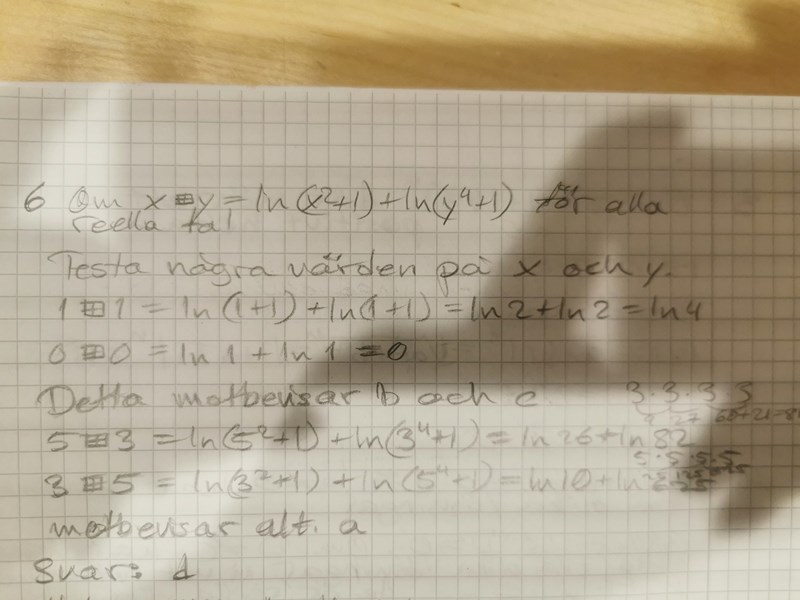 6 Om x ⊞ y = ln(x²+1) + ln(y⁴+1) för alla
reella tal
Testa några värden på x och y.
1 ⊞ 1 = ln(1+1) + ln(1+1) = ln2 + ln2 = ln4
0 ⊞ 0 = ln1 + ln1 = 0
Detta motbevisar b och c
3·3·3·3
5 ⊞ 3 = ln(5²+1) + ln(3⁴+1) = ln26 + ln82
5·5·5·5
3 ⊞ 5 = ln(3²+1) + ln(5⁴+1) = ln10 + ln
motbevisar alt. a
Svar: d